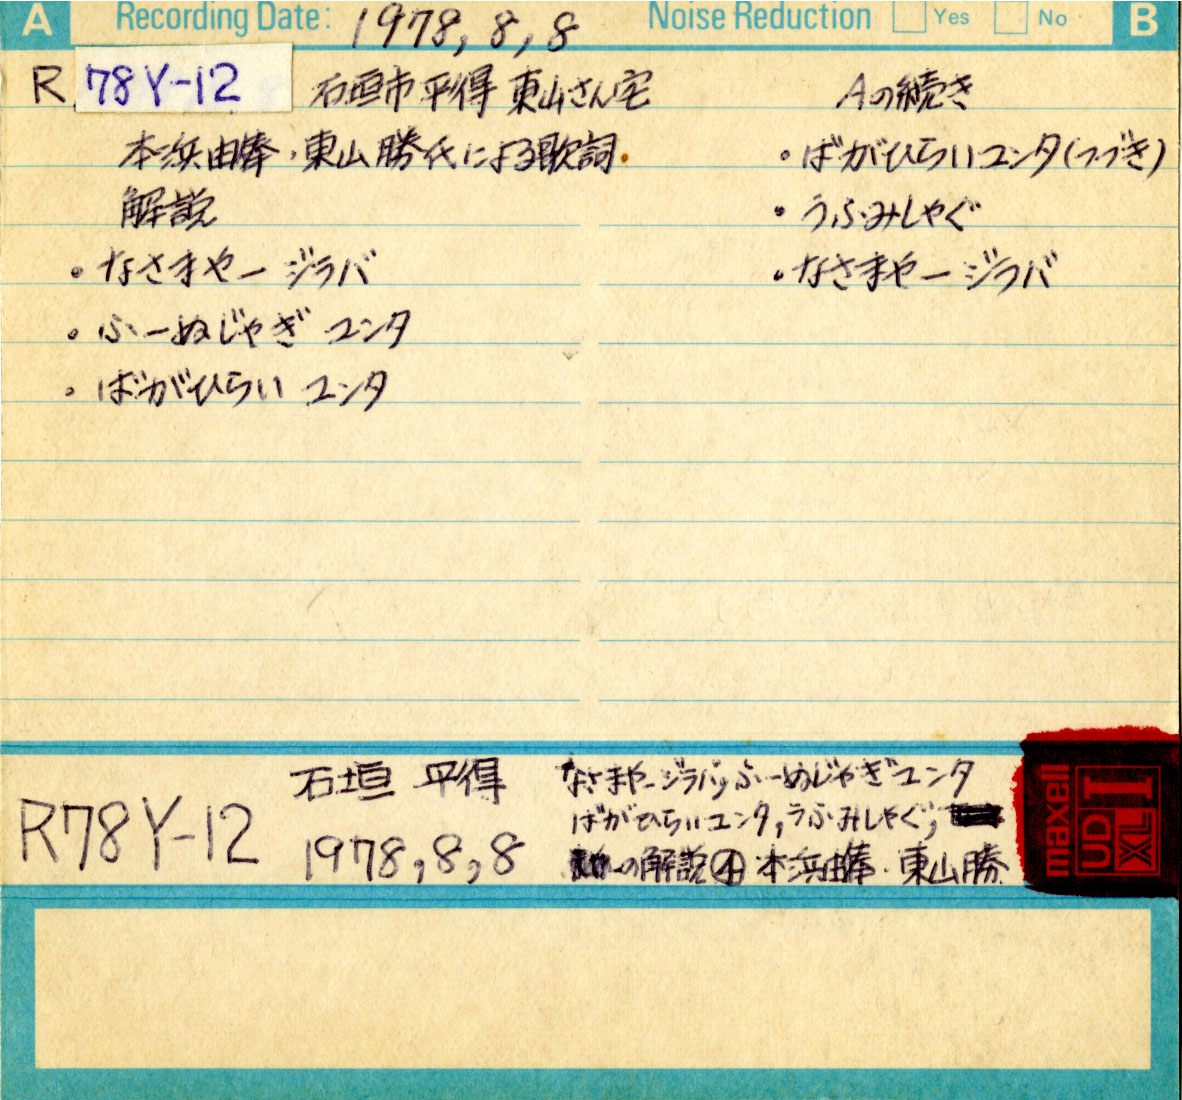 A Recording Date: 1978, 8, 8 Noise Reduction Yes No B
R 78Y-12 石垣市 平得 東山さん宅
本浜由俸・東山勝代による歌詞
解説
・なさまやー ジラバ
・ふーぬじゃぎ ユンタ
・ばがひらい ユンタ
Aの続き
・ばがひらいユンタ(つづき)
・うふみしゃぐ
・なさまやー ジラバ
R78Y-12
石垣 平得
1978,8,8
なさまやージラバ,ふーぬじゃぎユンタ
ばがひらいユンタ,うふみしゃぐ,
の解説 本浜由俸・東山勝
maxell
UD
XL
I